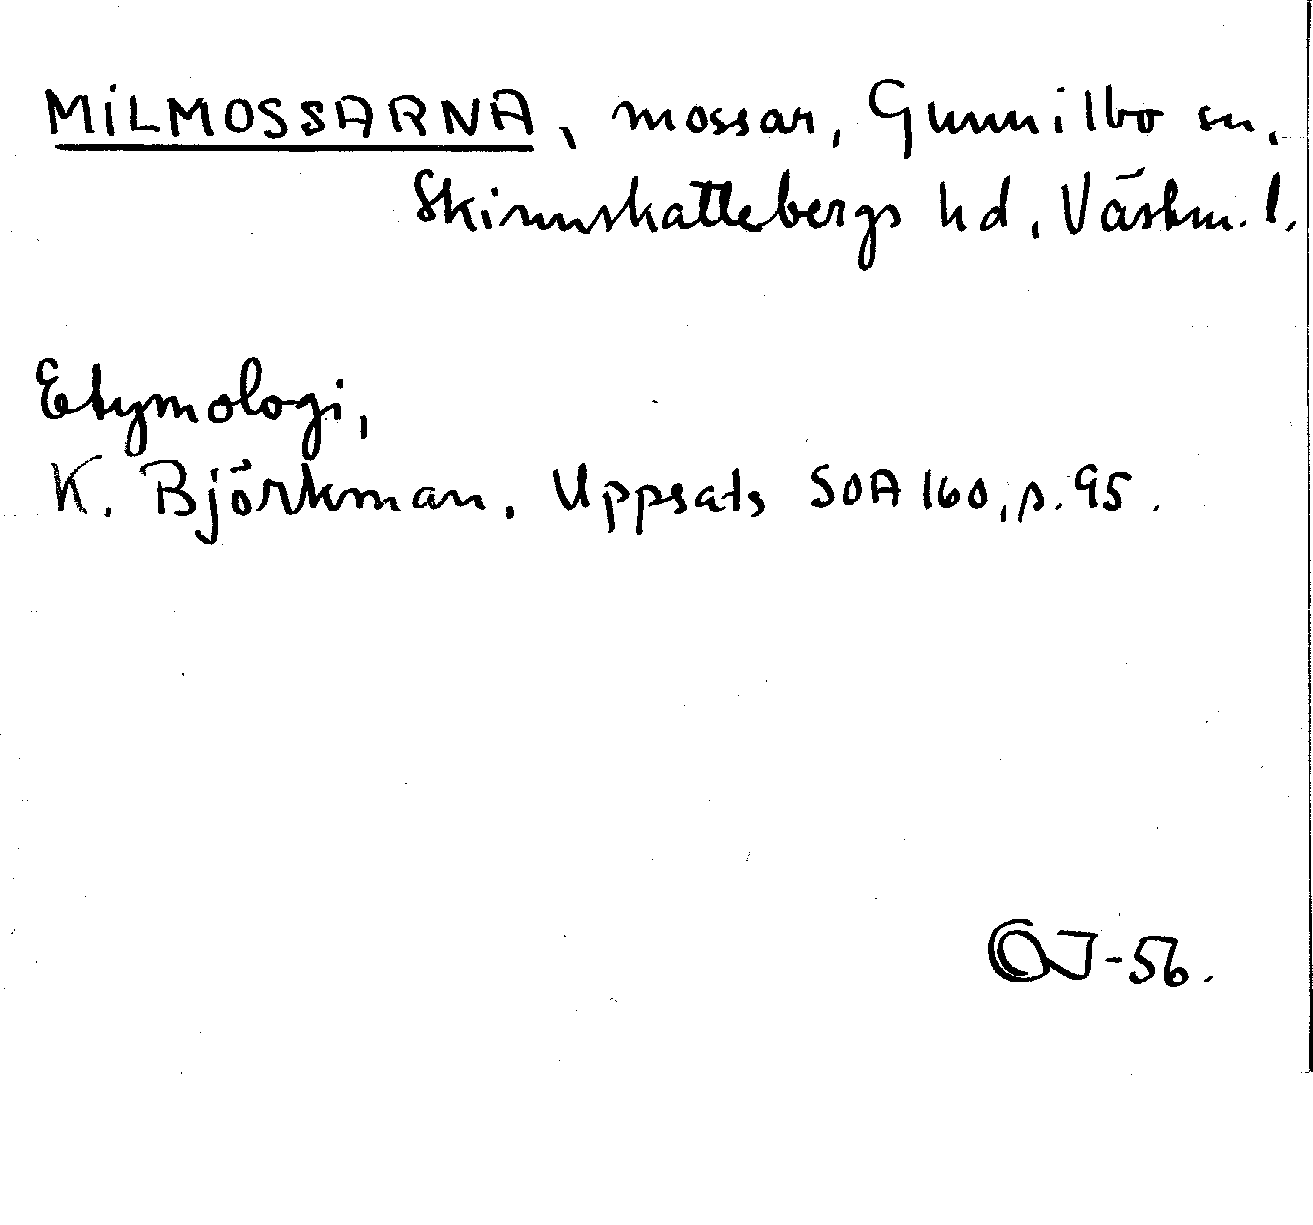 MILMOSSARNA, mossar, Gunnilbo sn.
Skinnskattebergs hd, Västm. l.
Etymologi,
K. Björkman. Uppsats SOA 160, p. 95.
OJ-56.